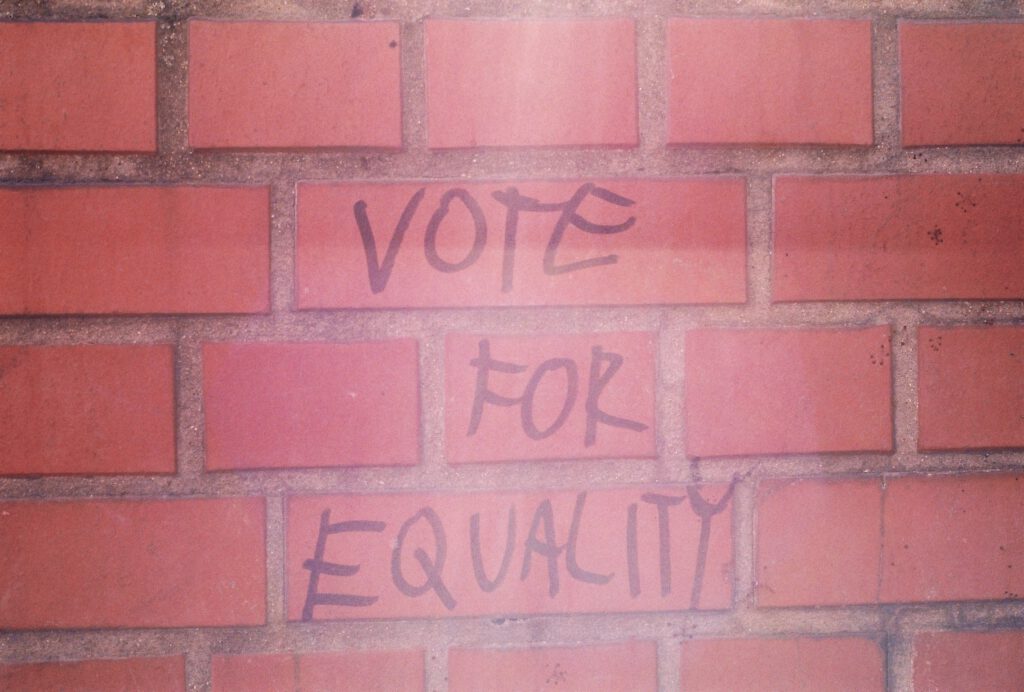 VOTE
FOR
EQUALITY